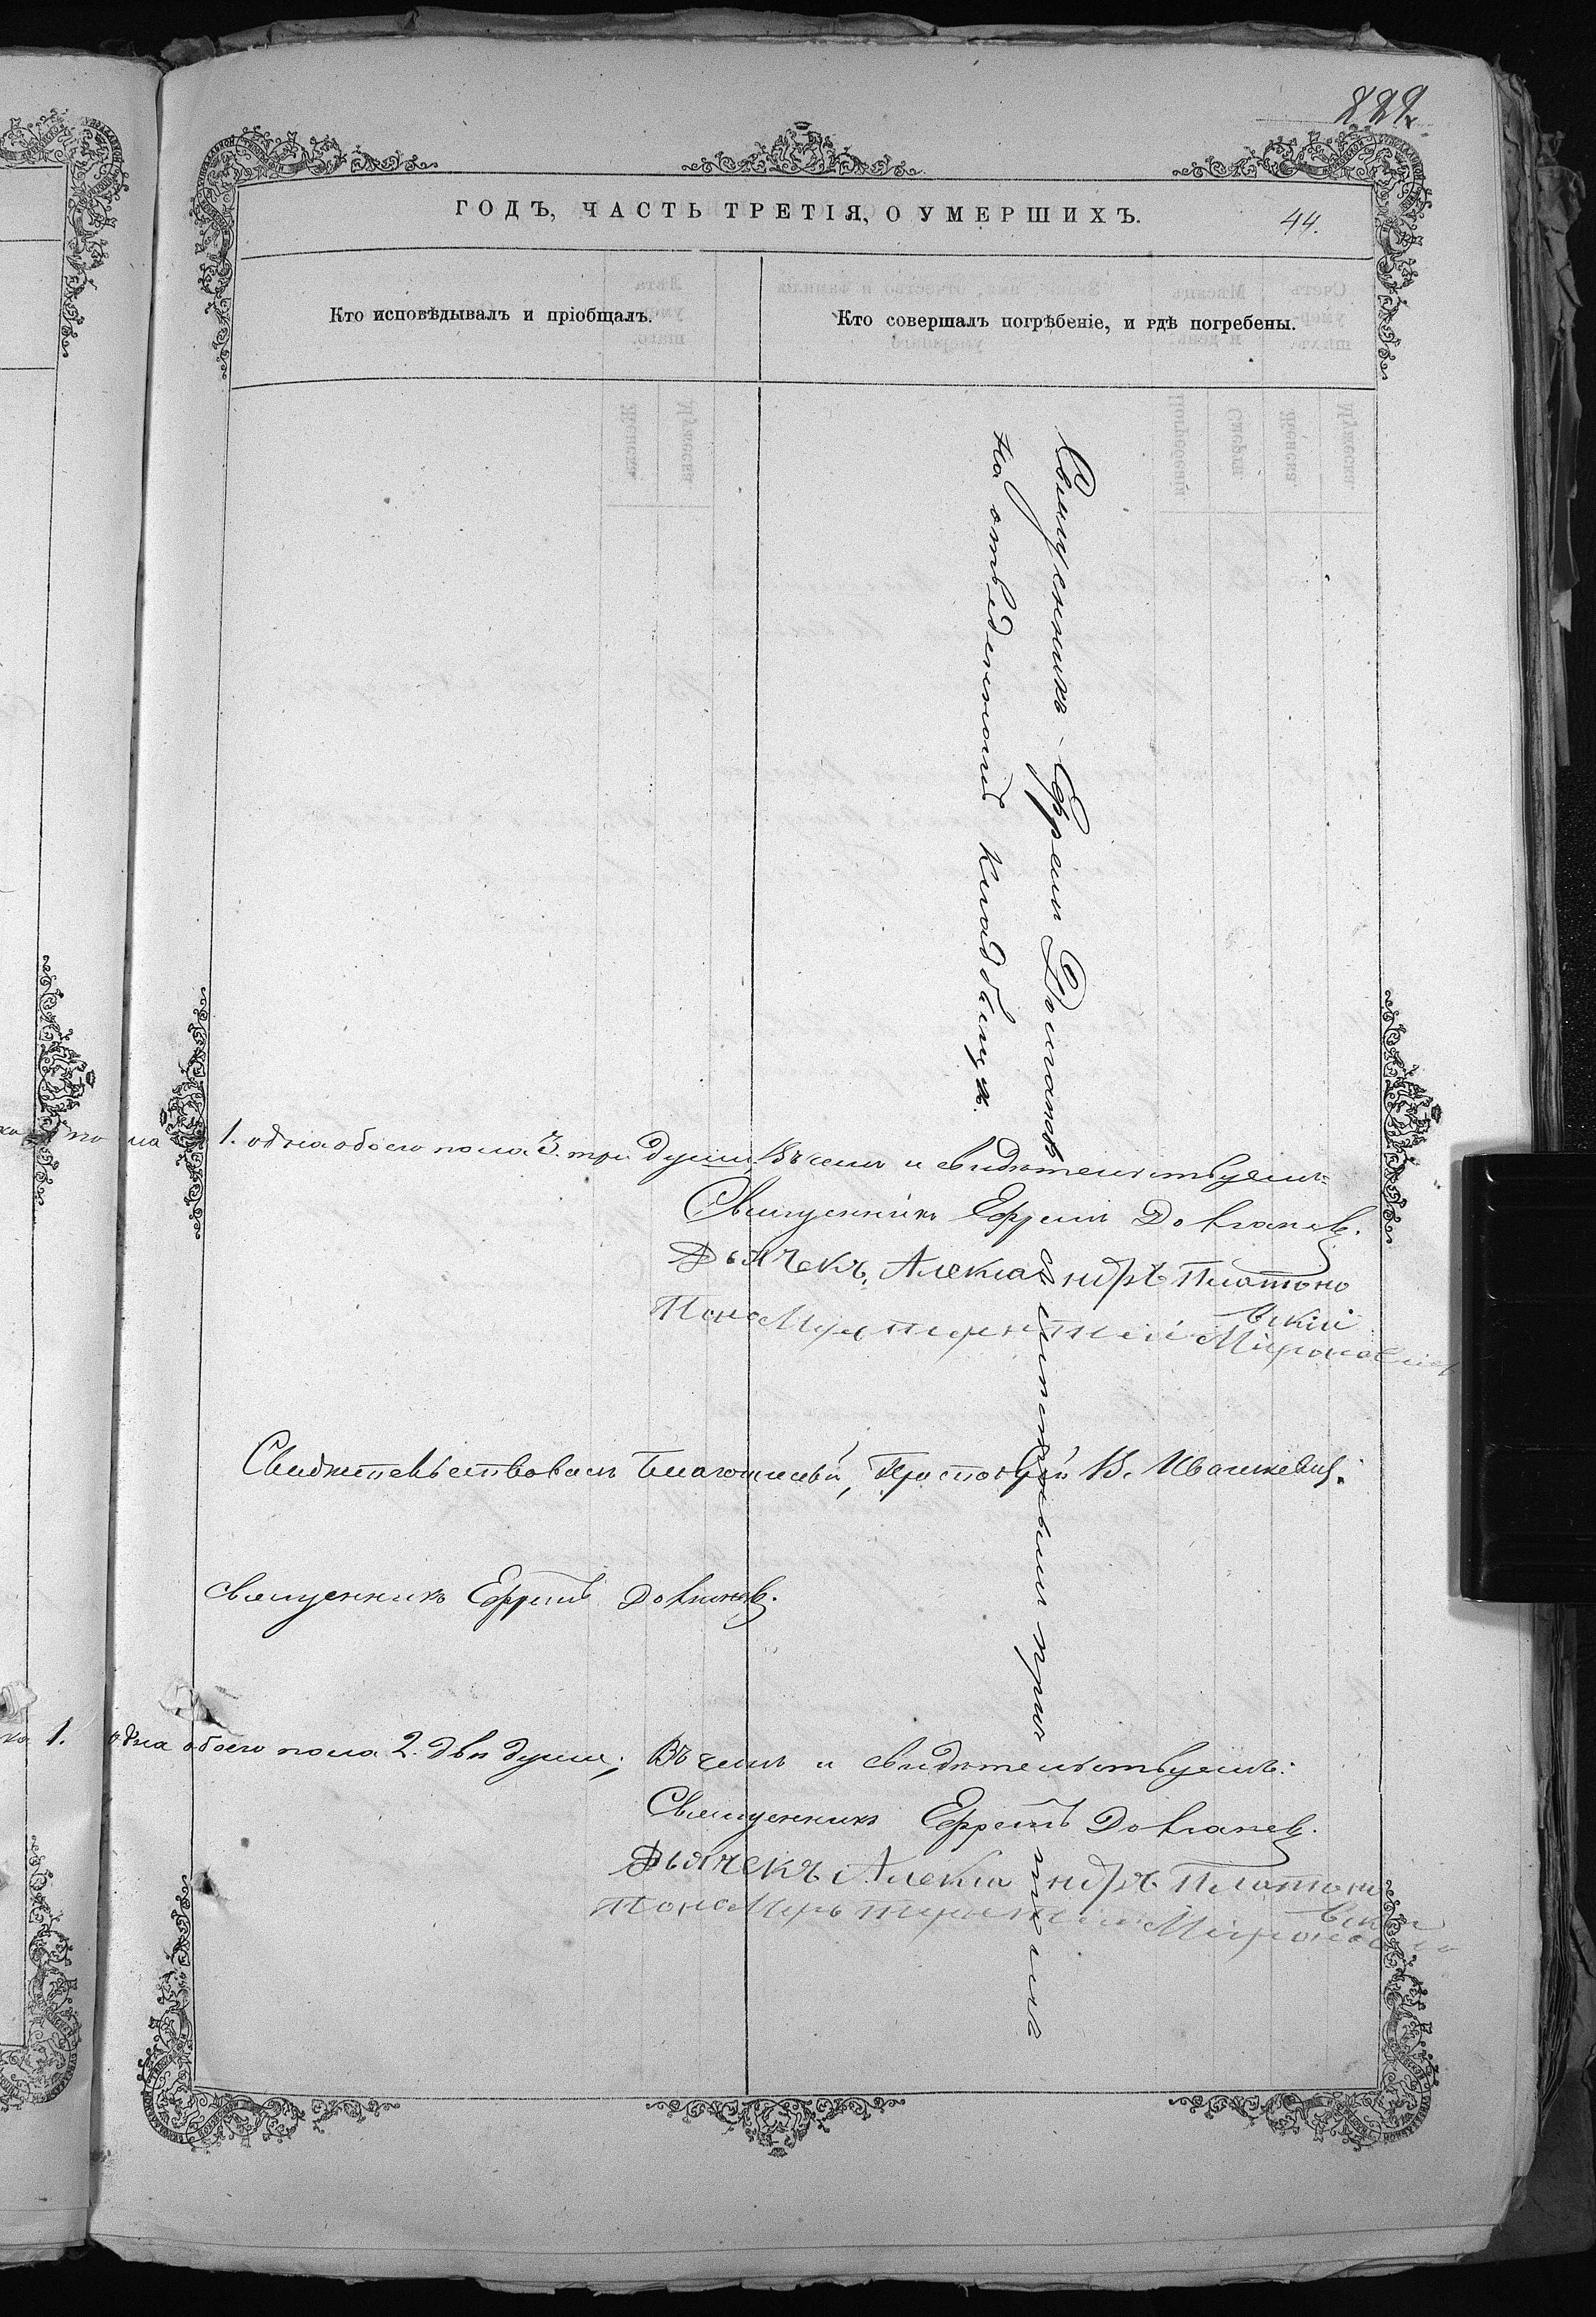 222.
ГОДЪ, ЧАСТЬ ТРЕТІЯ, О УМЕРШИХЪ.
44.
Кто исповѣдывалъ и пріобщалъ.
Кто совершалъ погрѣбеніе, и гдѣ погребены.
Священникъ Ефремъ
съ причтомъ
на отведенномъ кладбищѣ.
1. одна обоего пола 3. три души. Въ чемъ и свидѣтельствуемъ:
Священникъ Ефремъ
Дьячекъ, Александръ Платоно
вскій
Свидѣтельствовалъ Благочинный, Протоіерей В. Ивашкевич.
Священникъ Ефремъ
1. одна обоего пола 2. двѣ души; Въ чемъ и свидѣтельствуемъ:
Священникъ Ефремъ
Дьячекъ Александръ Платоно
вскій